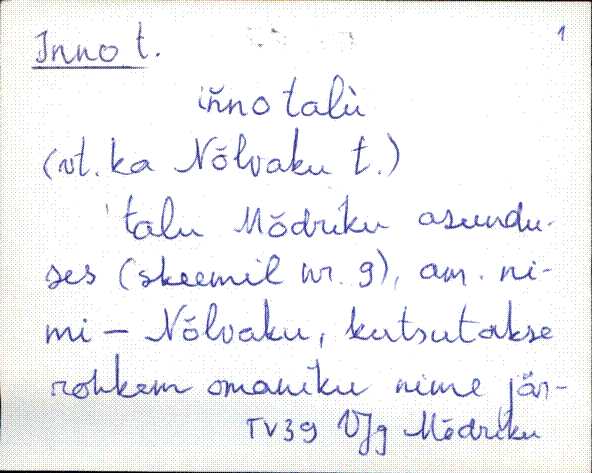 Inno t.
1
iňno talù
(vt. ka Nõlvaku t.)
talu Mõdriku asundu-
ses (skeemil nr. 9), am. ni-
mi – Nõlvaku, kutsutakse
rohkem omaniku nime jär-
TV39 VJg Mõdriku